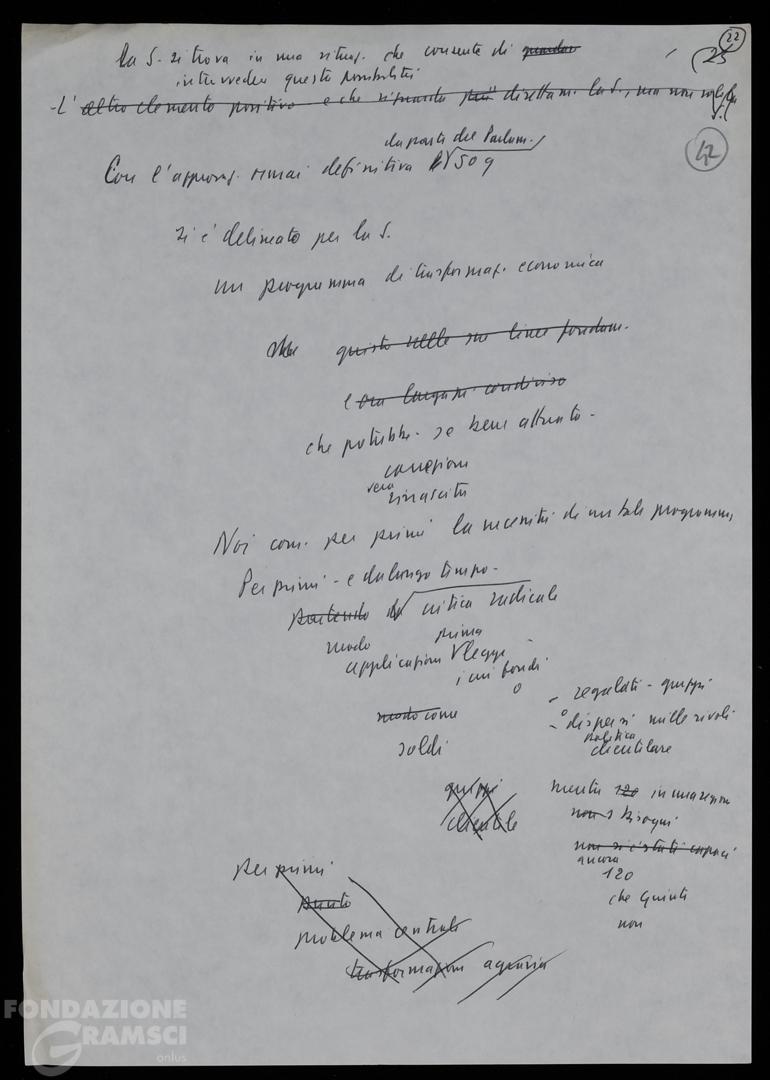 22
25
La S. si trova in una situaz. che consente di
intravvedere queste possibilità
- L'altro elemento positivo e che riguarda più direttam. la S., ma non solo la S. (
42
da parte del Parlam.
Con l'approvaz. ormai definitiva 509
si è delineato per la S.
un programma di trasformaz. economica
questo nelle sue linee fondam.
e ora largam. condiviso
che potrebbe - se bene attuato -
correzioni
vera
rinascita
Noi com. per primi la necessità di un tale programma,
Per primi - e da lungo tempo -
partendo da critica radicale
modo prima
applicazioni legge
i cui fondi
- regalati - gruppi
modo come
- dispersi mille rivoli
soldi
politica
clientelare
gruppi
mentre 120 in una regione
clientele
non s bisogni
non si è stati capaci
per primi
ancora
120
punto
che Giunta
problema centrale
non
trasformazioni agraria
FONDAZIONE
GRAMSCI
onlus